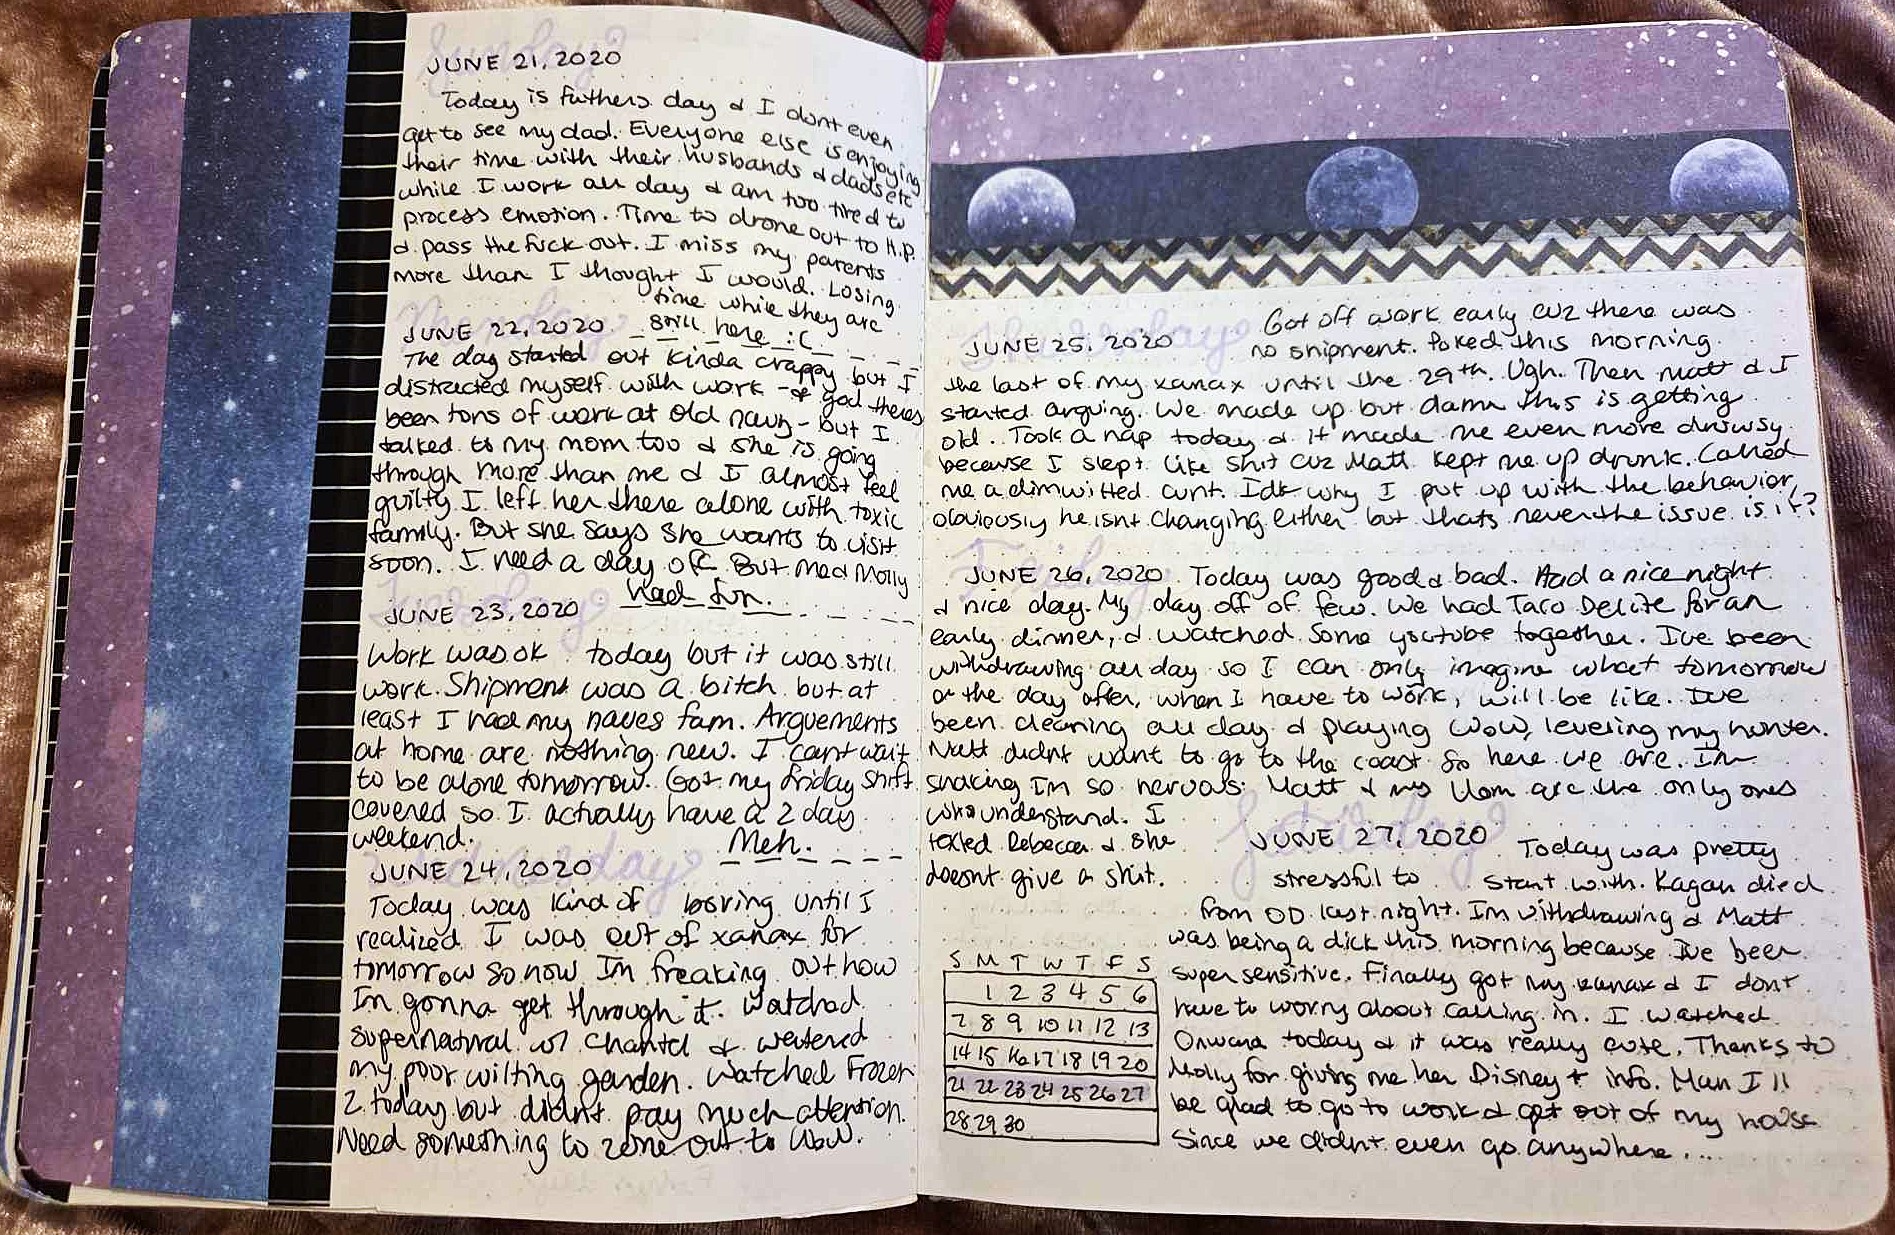 Sunday
JUNE 21, 2020
Today is fathers day & I dont even
get to see my dad. Everyone else is enjoying
their time with their husbands & dads etc
while I work all day & am too tired to
process emotion. Time to drone out to H.P.
& pass the fuck out. I miss my parents
more than I thought I would. Losing
time while they are
still here :(
Monday
JUNE 22, 2020
The day started out kinda crappy but I
distracted myself with work - & god theres
been tons of work at old navy - but I
talked to my mom too & she is going
through more than me & I almost feel
guilty I left her there alone with toxic
family. But she says she wants to visit
soon. I need a day off. But me & Molly
had fun.
Tuesday
JUNE 23, 2020
Work was ok today but it was still
work. Shipment was a bitch but at
least I had my naves fam. Arguements
at home are nothing new. I cant wait
to be alone tomorrow. Got my friday shift
covered so I actually have a 2 day
weekend. Meh.
Wednesday
JUNE 24, 2020
Today was kind of boring until I
realized I was out of xanax for
tomorrow so now Im freaking out how
Im gonna get through it. Watched
supernatural w/ Chantel & watered
my poor wilting garden. Watched Frozen
2 today but didnt pay much attention.
Need something to zone out to WoW.
Thursday
JUNE 25, 2020
Got off work early cuz there was
no shipment. Poked this morning
the last of my xanax until the 29th. Ugh. Then Matt & I
started arguing. We made up but damn this is getting
old. Took a nap today & it made me even more drowsy
because I slept like shit cuz Matt kept me up drunk. Called
me a dimwitted cunt. Idk why I put up with the behavior,
obviously he isnt changing either but thats never the issue is it?
Friday
JUNE 26, 2020 Today was good & bad. Had a nice night
& nice day. My day off of few. We had Taco Delite for an
early dinner, & watched some youtube together. Ive been
withdrawing all day so I can only imagine what tomorrow
or the day after, when I have to work, will be like. Ive
been cleaning all day & playing WoW, leveling my hunter.
Matt didnt want to go to the coast so here we are. Im
shaking Im so nervous. Matt & my Mom are the only ones
who understand. I
texted Rebecca & she
doesnt give a shit.
Saturday
JUNE 27, 2020
Today was pretty
stressful to start with. Kagan died
from OD last night. Im withdrawing & Matt
was being a dick this morning because Ive been
super sensitive. Finally got my xanax & I dont
have to worry about calling in. I watched
Onward today & it was really cute. Thanks to
Molly for giving me her Disney + info. Man I'll
be glad to go to work & get out of my house
since we didnt even go anywhere....
S M T W T F S
1 2 3 4 5 6
7 8 9 10 11 12 13
14 15 16 17 18 19 20
21 22 23 24 25 26 27
28 29 30